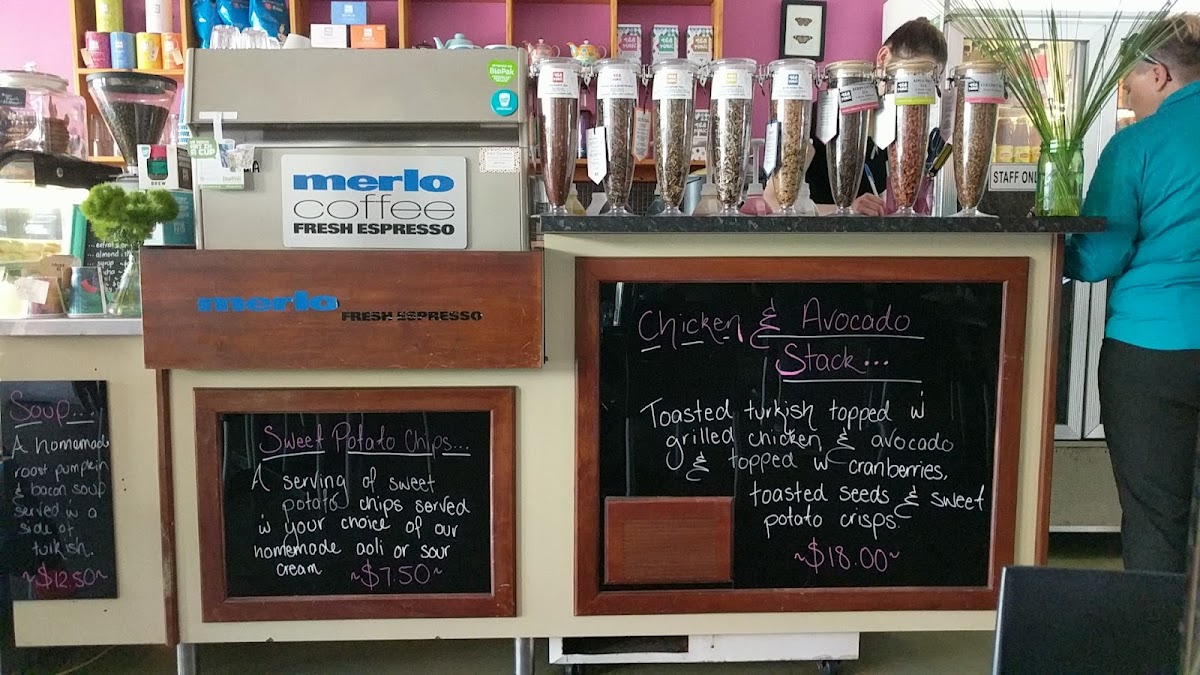 BioPak
merlo
coffee
FRESH ESPRESSO
merlo
FRESH ESPRESSO
BREW
STAFF ONL
Soup...
A homemade
roast pumpkin
& bacon soup
served w a
side of
turkish.
~$12.50~
Sweet Potato Chips...
A serving of sweet
potato chips served
w your choice of our
homemade aoli or sour
cream ~$7.50~
Chicken & Avocado
Stack...
Toasted turkish topped w
grilled chicken & avocado
& topped w cranberries,
toasted seeds & sweet
potato crisps
~$18.00~